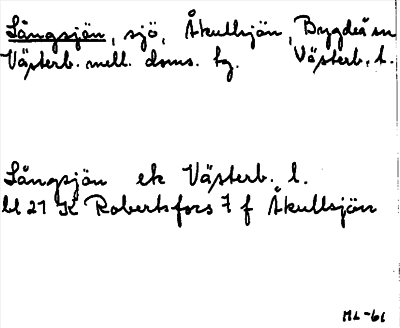 Långsjön, sjö, Åkullsjön, Bygdeå sn
Västerb. mell. doms. tg. Västerb. l.
Långsjön ek Västerb. l.
bl 21 K Robertsfors 7 f Åkullsjön
ML-61